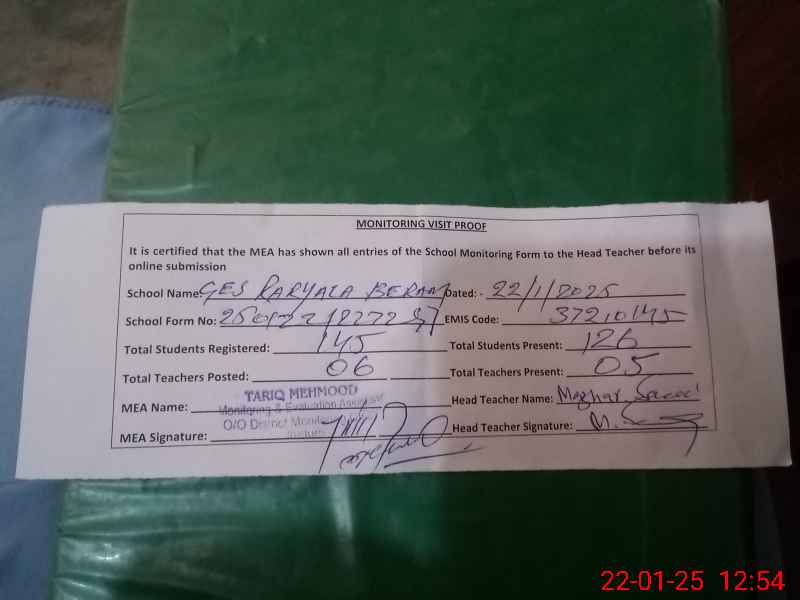 MONITORING VISIT PROOF
It is certified that the MEA has shown all entries of the School Monitoring Form to the Head Teacher before its
online submission
School Name: GES RARYALA BERAM Dated: - 22/1/2025
School Form No: EMIS Code: 37210145
Total Students Registered: 145 Total Students Present: 126
Total Teachers Posted: 06 Total Teachers Present: 05
TARIQ MEHMOOD
MEA Name: Monitoring & Evaluation Assistant Head Teacher Name:
O/O District Monitoring
MEA Signature: Head Teacher Signature:
22-01-25 12:54